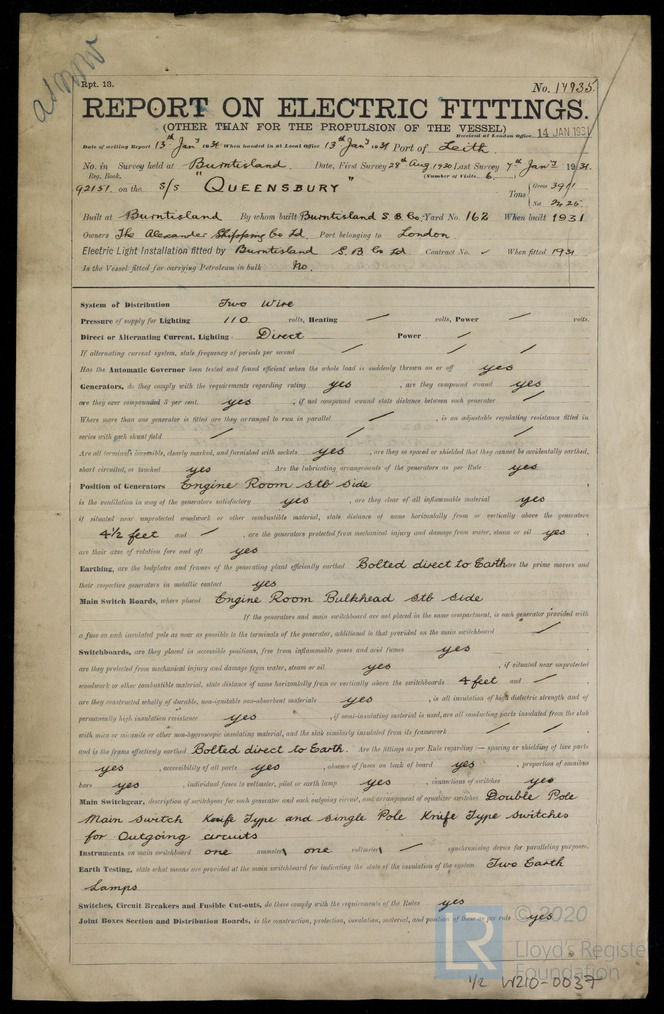 Rpt. 13.
No. 14935.
REPORT ON ELECTRIC FITTINGS.
(OTHER THAN FOR THE PROPULSION OF THE VESSEL)
Received at London Office, 14 JAN 1931
Date of writing Report 13th Jany 1931 When handed in at Local Office 13th Jany 1931 Port of Leith
No. in Survey held at Burntisland. Date, First Survey 28th Aug 1930 Last Survey 7th Jany 1931.
Reg. Book. (Number of Visits 6.)
92151 on the S/S "QUEENSBURY" Tons { Gross 3911
Net 2425
Built at Burntisland By whom built Burntisland S. B. Co. Yard No. 162 When built 1931
Owners The Alexander Shipping Co Ld Port belonging to London
Electric Light Installation fitted by Burntisland S. B Co Ld Contract No. ✓ When fitted 1931
Is the Vessel fitted for carrying Petroleum in bulk No.
System of Distribution Two Wire
Pressure of supply for Lighting 110 volts, Heating / volts, Power / volts.
Direct or Alternating Current, Lighting Direct Power /
If alternating current system, state frequency of periods per second / / /
Has the Automatic Governor been tested and found efficient when the whole load is suddenly thrown on or off yes
Generators, do they comply with the requirements regarding rating yes, are they compound wound yes
are they over compounded 5 per cent. yes, if not compound wound state distance between each generator /
Where more than one generator is fitted are they arranged to run in parallel /, is an adjustable regulating resistance fitted in
series with each shunt field / / /
Are all terminals accessible, clearly marked, and furnished with sockets yes, are they so spaced or shielded that they cannot be accidentally earthed,
short circuited, or touched yes Are the lubricating arrangements of the generators as per Rule yes
Position of Generators Engine Room Stb Side
is the ventilation in way of the generators satisfactory yes, are they clear of all inflammable material yes
if situated near unprotected woodwork or other combustible material, state distance of same horizontally from or vertically above the generators
4½ feet and /, are the generators protected from mechanical injury and damage from water, steam or oil yes,
are their axes of rotation fore and aft yes
Earthing, are the bedplates and frames of the generating plant efficiently earthed Bolted direct to Earth are the prime movers and
their respective generators in metallic contact yes
Main Switch Boards, where placed Engine Room Bulkhead Stb Side
If the generators and main switchboard are not placed in the same compartment, is each generator provided with
a fuse on each insulated pole as near as possible to the terminals of the generator, additional to that provided on the main switchboard /
Switchboards, are they placed in accessible positions, free from inflammable gases and acid fumes yes
are they protected from mechanical injury and damage from water, steam or oil yes, if situated near unprotected
woodwork or other combustible material, state distance of same horizontally from or vertically above the switchboards 4 feet and /
are they constructed wholly of durable, non-ignitable non-absorbent materials yes, is all insulation of high dielectric strength and of
permanently high insulation resistance yes, if semi-insulating material is used, are all conducting parts insulated from the slab
with mica or micanite or other non-hygroscopic insulating material, and the slab similarly insulated from its framework / /
and is the frame effectively earthed Bolted direct to Earth. Are the fittings as per Rule regarding:— spacing or shielding of live parts
yes, accessibility of all parts yes, absence of fuses on back of board yes, proportion of omnibus
bars yes, individual fuses to voltmeter, pilot or earth lamp yes, connections of switches yes
Main Switchgear, description of switchgear for each generator and each outgoing circuit, and arrangement of equalizer switches Double Pole
Main switch Knife Type and Single Pole Knife Type Switches
for Outgoing circuits
Instruments on main switchboard one ammeter one voltmeter / synchronising device for paralleling purposes.
Earth Testing, state what means are provided at the main switchboard for indicating the state of the insulation of the system Two Earth
Lamps
Switches, Circuit Breakers and Fusible Cut-outs, do these comply with the requirements of the Rules yes
Joint Boxes Section and Distribution Boards, is the construction, protection, insulation, material, and position of these as per rule yes
LR
© 2020
Lloyd's Register
Foundation
1/2 W210-0037